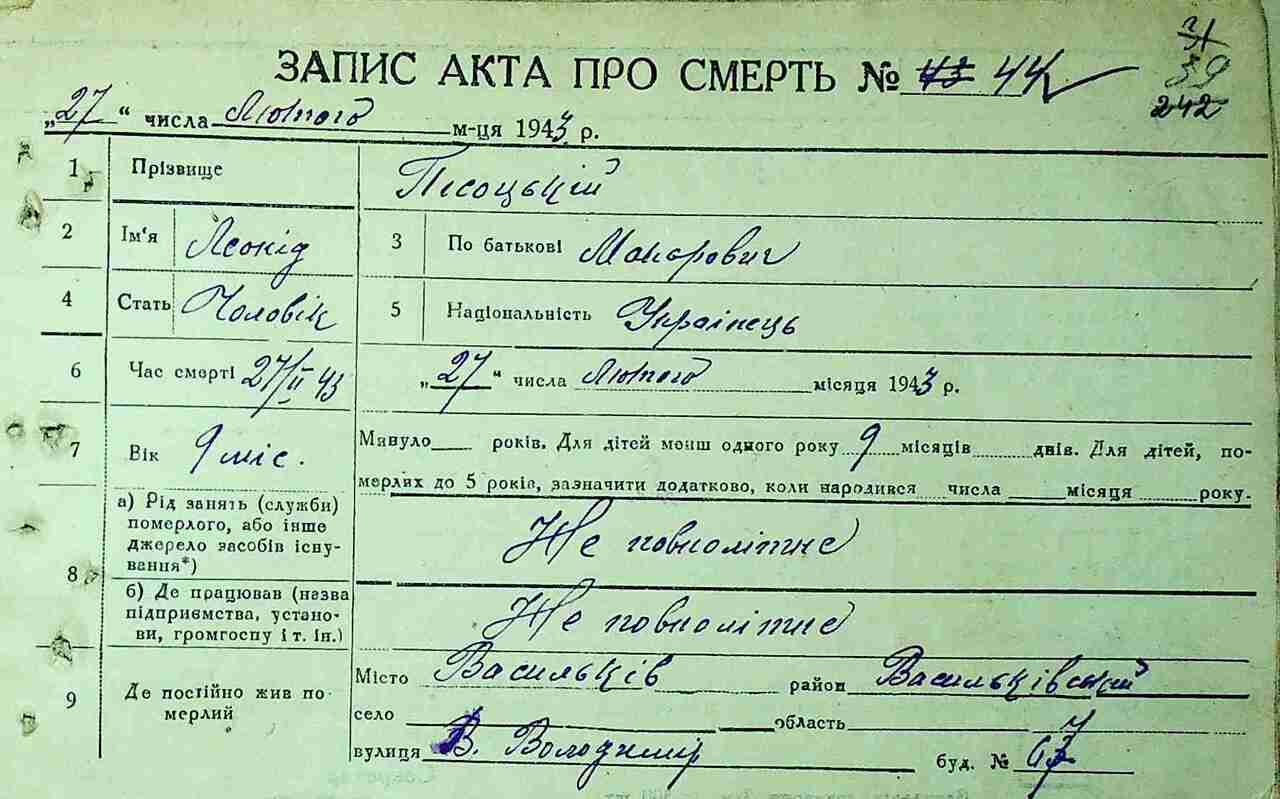 31
39
242
ЗАПИС АКТА ПРО СМЕРТЬ № 43 44
„27“ числа Лютого м-ця 1943 р.
1 Прізвище Пісоцькій
2 Ім'я Леонід 3 По батькові Макарович
4 Стать Чоловік 5 Національність Українець
6 Час смерті 27/II 43 „27“ числа Лютого місяця 1943 р.
7 Вік 9 міс. Минуло____ років. Для дітей менш одного року 9 місяців ........ днів. Для дітей, по-
мерлих до 5 років, зазначити додатково, коли народився ... числа ____ місяця ........ року.
8 а) Рід занять (служби) померлого, або інше джерело засобів існу-вання*) Не повнолітнє
б) Де працював (назва підприємства, устано-ви, громгоспу і т. ін.) Не повнолітнє
9 Де постійно жив по-мерлий Місто Васильків район Васильківський
село область
вулиця В. Володимір буд. №